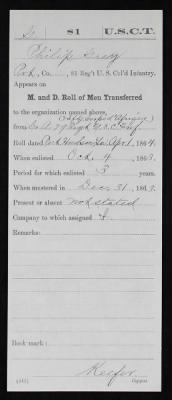 G 81 U.S.C.T.
Philip Gray
Pvt., Co. , 81 Reg't U. S. Col'd Infantry.
Appears on
M. and D. Roll of Men Transferred
to the organization named above,
from Co. A 79 Regt U.S.C. Inf.
Roll dated Port Hudson La Apr 1, 1864.
When enlisted Oct. 4, 1863.
Period for which enlisted 3 years.
When mustered in Dec 31, 1863.
Present or absent not stated
Company to which assigned
Remarks:
Book mark:
Keefer
(541) Copyist.